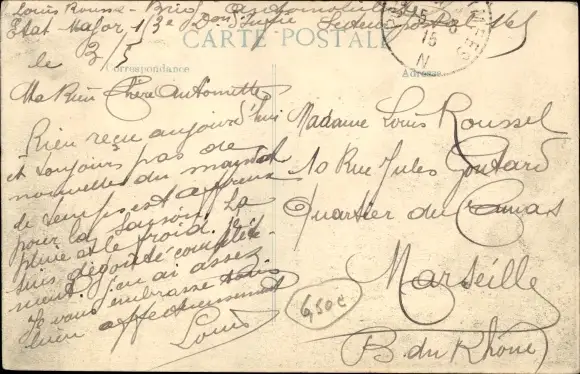 Louis Roussel - Brig. Automobiliste
Etat Major 13e Don Inftie Secteur postal
le 3/5
CARTE POSTALE
Correspondance
Adresse
15
Ma Bien Chère Antoinette
Rien reçu aujourd'hui
et toujours pas de
nouvelles du
Le temps est affreux
pour la saison. La
pluie et le froid. Je
suis dégoûté complète-
ment, j'en ai assez
Je vous embrasse tous
bien affectueusement
Louis
Madame Louis Roussel
10 Rue Jules Goutard
Quartier du Camas
Marseille
B. du Rhône
6,50 €